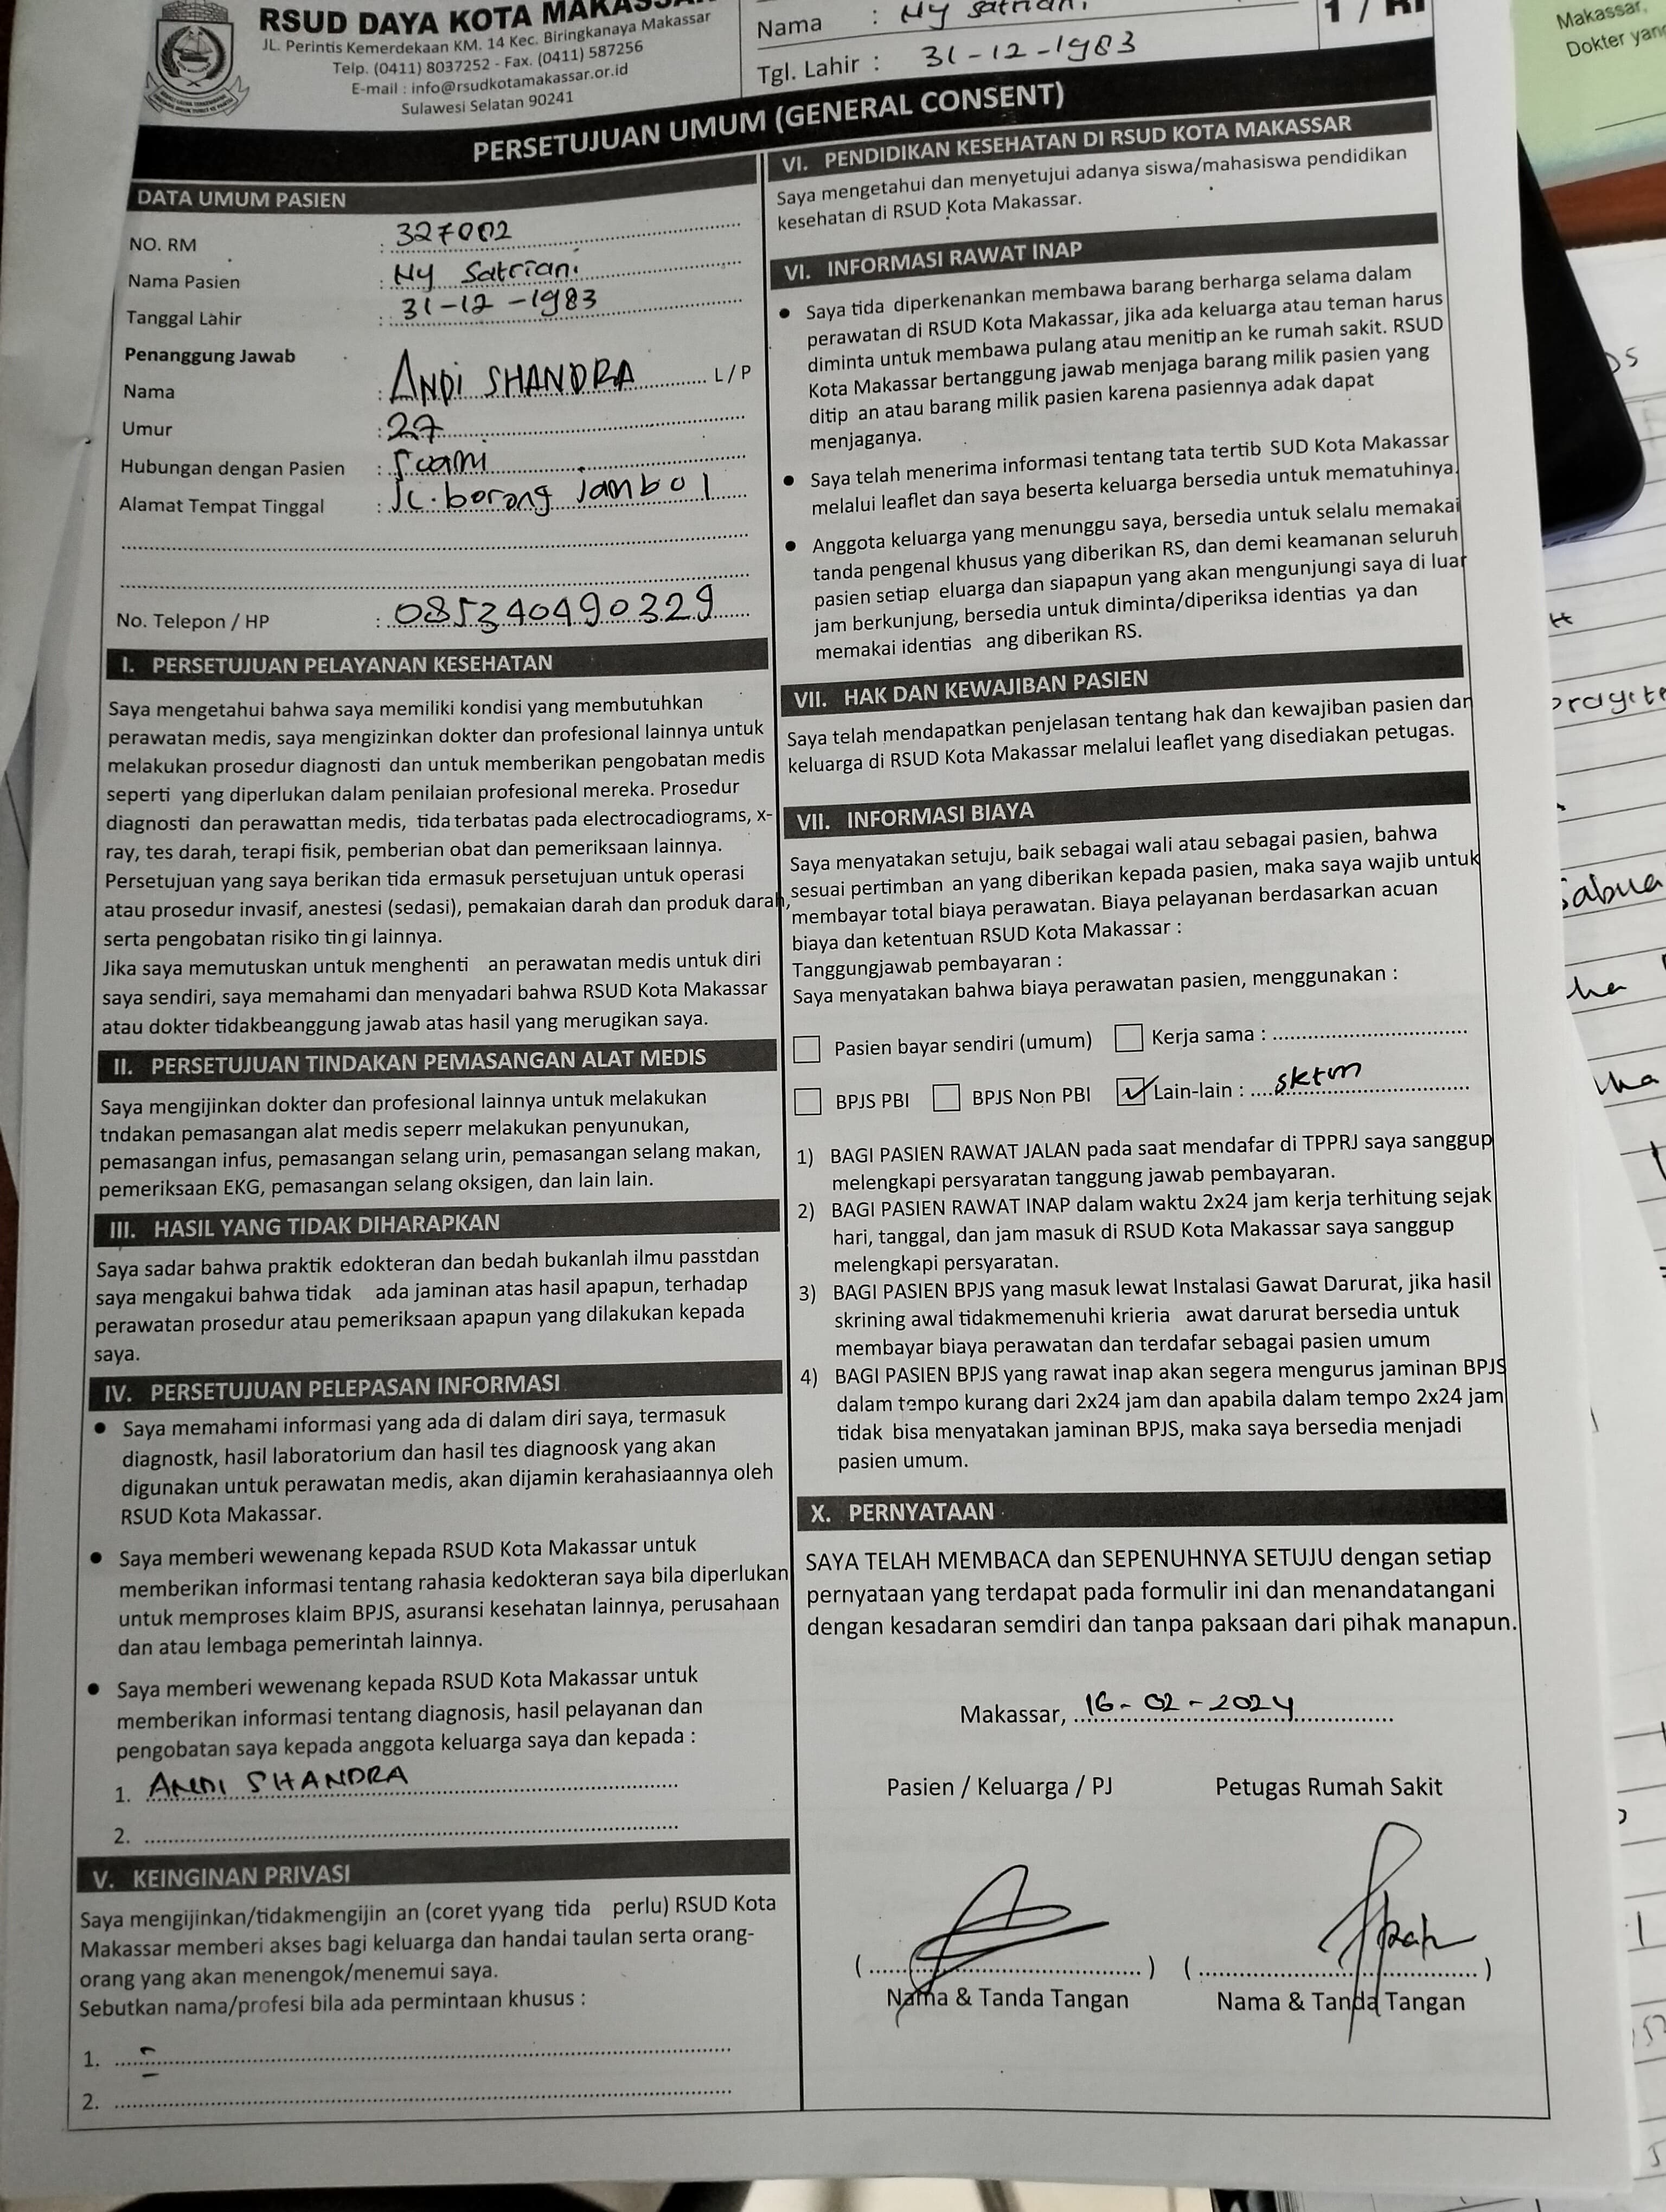 RSUD DAYA KOTA MAKASSAR
JL. Perintis Kemerdekaan KM. 14 Kec. Biringkanaya Makassar
Telp. (0411) 8037252 - Fax. (0411) 587256
E-mail : info@rsudkotamakassar.or.id
Sulawesi Selatan 90241
Nama : Ny Satriani
Tgl. Lahir : 31-12-1983
1 / RI
PERSETUJUAN UMUM (GENERAL CONSENT)
DATA UMUM PASIEN
NO. RM : 327002
Nama Pasien : Ny Satriani
Tanggal Lahir : 31-12-1983
Penanggung Jawab
Nama : ANDI SHANDRA L / P
Umur : 27
Hubungan dengan Pasien : Suami
Alamat Tempat Tinggal : Jl. borong Jambol
No. Telepon / HP : 085340490329
I. PERSETUJUAN PELAYANAN KESEHATAN
Saya mengetahui bahwa saya memiliki kondisi yang membutuhkan
perawatan medis, saya mengizinkan dokter dan profesional lainnya untuk
melakukan prosedur diagnosti dan untuk memberikan pengobatan medis
seperti yang diperlukan dalam penilaian profesional mereka. Prosedur
diagnosti dan perawattan medis, tida terbatas pada electrocadiograms, x-
ray, tes darah, terapi fisik, pemberian obat dan pemeriksaan lainnya.
Persetujuan yang saya berikan tida ermasuk persetujuan untuk operasi
atau prosedur invasif, anestesi (sedasi), pemakaian darah dan produk darah,
serta pengobatan risiko tin gi lainnya.
Jika saya memutuskan untuk menghenti an perawatan medis untuk diri
saya sendiri, saya memahami dan menyadari bahwa RSUD Kota Makassar
atau dokter tidakbeanggung jawab atas hasil yang merugikan saya.
II. PERSETUJUAN TINDAKAN PEMASANGAN ALAT MEDIS
Saya mengijinkan dokter dan profesional lainnya untuk melakukan
tndakan pemasangan alat medis seperr melakukan penyunukan,
pemasangan infus, pemasangan selang urin, pemasangan selang makan,
pemeriksaan EKG, pemasangan selang oksigen, dan lain lain.
III. HASIL YANG TIDAK DIHARAPKAN
Saya sadar bahwa praktik edokteran dan bedah bukanlah ilmu passtdan
saya mengakui bahwa tidak ada jaminan atas hasil apapun, terhadap
perawatan prosedur atau pemeriksaan apapun yang dilakukan kepada
saya.
IV. PERSETUJUAN PELEPASAN INFORMASI
• Saya memahami informasi yang ada di dalam diri saya, termasuk
diagnostk, hasil laboratorium dan hasil tes diagnoosk yang akan
digunakan untuk perawatan medis, akan dijamin kerahasiaannya oleh
RSUD Kota Makassar.
• Saya memberi wewenang kepada RSUD Kota Makassar untuk
memberikan informasi tentang rahasia kedokteran saya bila diperlukan
untuk memproses klaim BPJS, asuransi kesehatan lainnya, perusahaan
dan atau lembaga pemerintah lainnya.
• Saya memberi wewenang kepada RSUD Kota Makassar untuk
memberikan informasi tentang diagnosis, hasil pelayanan dan
pengobatan saya kepada anggota keluarga saya dan kepada :
1. ANDI SHANDRA
2.
V. KEINGINAN PRIVASI
Saya mengijinkan/tidakmengijin an (coret yyang tida perlu) RSUD Kota
Makassar memberi akses bagi keluarga dan handai taulan serta orang-
orang yang akan menengok/menemui saya.
Sebutkan nama/profesi bila ada permintaan khusus :
1.
2.
VI. PENDIDIKAN KESEHATAN DI RSUD KOTA MAKASSAR
Saya mengetahui dan menyetujui adanya siswa/mahasiswa pendidikan
kesehatan di RSUD Kota Makassar.
VI. INFORMASI RAWAT INAP
• Saya tida diperkenankan membawa barang berharga selama dalam
perawatan di RSUD Kota Makassar, jika ada keluarga atau teman harus
diminta untuk membawa pulang atau menitip an ke rumah sakit. RSUD
Kota Makassar bertanggung jawab menjaga barang milik pasien yang
ditip an atau barang milik pasien karena pasiennya adak dapat
menjaganya.
• Saya telah menerima informasi tentang tata tertib SUD Kota Makassar
melalui leaflet dan saya beserta keluarga bersedia untuk mematuhinya.
• Anggota keluarga yang menunggu saya, bersedia untuk selalu memakai
tanda pengenal khusus yang diberikan RS, dan demi keamanan seluruh
pasien setiap eluarga dan siapapun yang akan mengunjungi saya di luar
jam berkunjung, bersedia untuk diminta/diperiksa identias ya dan
memakai identias ang diberikan RS.
VII. HAK DAN KEWAJIBAN PASIEN
Saya telah mendapatkan penjelasan tentang hak dan kewajiban pasien dan
keluarga di RSUD Kota Makassar melalui leaflet yang disediakan petugas.
VII. INFORMASI BIAYA
Saya menyatakan setuju, baik sebagai wali atau sebagai pasien, bahwa
sesuai pertimban an yang diberikan kepada pasien, maka saya wajib untuk
membayar total biaya perawatan. Biaya pelayanan berdasarkan acuan
biaya dan ketentuan RSUD Kota Makassar :
Tanggungjawab pembayaran :
Saya menyatakan bahwa biaya perawatan pasien, menggunakan :
Pasien bayar sendiri (umum) Kerja sama :
BPJS PBI BPJS Non PBI ✓ Lain-lain : sktm
1) BAGI PASIEN RAWAT JALAN pada saat mendafar di TPPRJ saya sanggup
melengkapi persyaratan tanggung jawab pembayaran.
2) BAGI PASIEN RAWAT INAP dalam waktu 2x24 jam kerja terhitung sejak
hari, tanggal, dan jam masuk di RSUD Kota Makassar saya sanggup
melengkapi persyaratan.
3) BAGI PASIEN BPJS yang masuk lewat Instalasi Gawat Darurat, jika hasil
skrining awal tidakmemenuhi krieria awat darurat bersedia untuk
membayar biaya perawatan dan terdafar sebagai pasien umum
4) BAGI PASIEN BPJS yang rawat inap akan segera mengurus jaminan BPJS
dalam tempo kurang dari 2x24 jam dan apabila dalam tempo 2x24 jam
tidak bisa menyatakan jaminan BPJS, maka saya bersedia menjadi
pasien umum.
X. PERNYATAAN
SAYA TELAH MEMBACA dan SEPENUHNYA SETUJU dengan setiap
pernyataan yang terdapat pada formulir ini dan menandatangani
dengan kesadaran semdiri dan tanpa paksaan dari pihak manapun.
Makassar, 16-02-2024
Pasien / Keluarga / PJ Petugas Rumah Sakit
( ) ( )
Nama & Tanda Tangan Nama & Tanda Tangan
Makassar,
Dokter yang